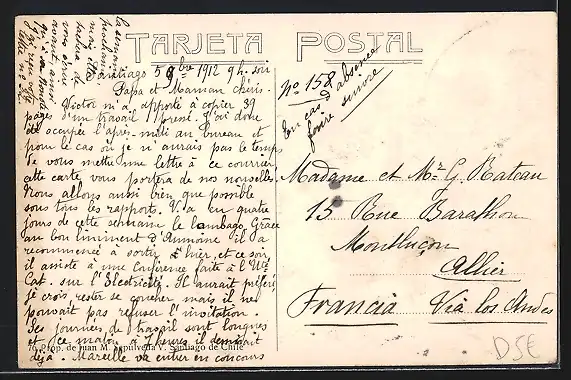 TARJETA POSTAL
Santiago 5 9bre 1912 9h. soir
Papa et Maman chéris.
Victor m'a apporté à copier 39
pages d'un travail pressé. J'ai donc
été occupée l'après-midi au bureau et
pour le cas où je n'aurais pas le temps
de vous mettre une lettre à ce courrier
cette carte vous portera de nos nouvelles.
Nous allons aussi bien que possible
sous tous les rapports. V. a eu quatre
jours de cette semaine le lumbago. Grâce
au bon liniment d'Ammone il a
recommencé à sortir hier, et ce soir
il assiste à une Conférence faite à l'Uté
Cat. sur l'Electricité. Il aurait préféré
je crois rester se coucher mais il ne
pouvait pas refuser l'invitation.
Ses journées de travail sont longues
et ce matin à 7 heures il dessinait
déjà. Marcelle va entrer en concours
la semaine
prochaine
mais elle
No 158
En cas d'absence
faire suivre
Madame et Mr G. Rateau
13 Rue Barathon
Montluçon
Allier
Francia Via los Andes
76 Prop. de Juan M. Sepulveda V. Santiago de Chile
DSE